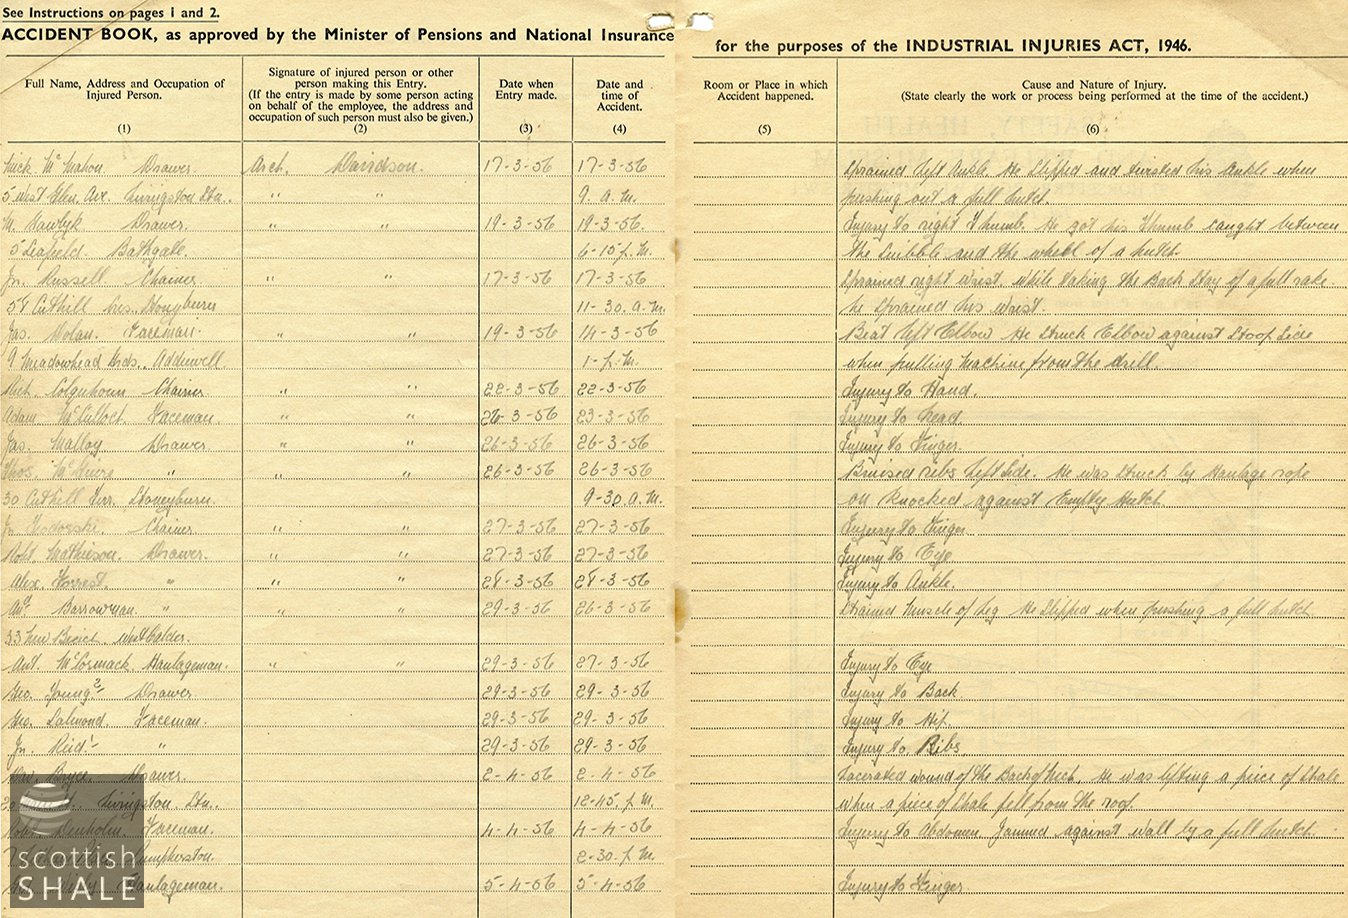 See Instructions on pages 1 and 2.
ACCIDENT BOOK, as approved by the Minister of Pensions and National Insurance for the purposes of the INDUSTRIAL INJURIES ACT, 1946.
Full Name, Address and Occupation of Injured Person. (1)
Signature of injured person or other person making this Entry. (If the entry is made by some person acting on behalf of the employee, the address and occupation of such person must also be given.) (2)
Date when Entry made. (3)
Date and time of Accident. (4)
Room or Place in which Accident happened. (5)
Cause and Nature of Injury. (State clearly the work or process being performed at the time of the accident.) (6)
Mick. McMahon Drawer. Arch. Davidson. 17-3-56 17-3-56 Sprained left Ankle. He Slipped and twisted his Ankle when
5 West Glen. Av. Livingston Stn.. " " 9. a.m. pushing out a full hutch.
M. Drawer. " " 19-3-56 19-3-56. Injury to right Thumb. He got his Thumb caught between
5 Leafield. Bathgate. 6-10 p.m. the and the wheel of a hutch.
Jn. Russell Chainer " " 17-3-56 17-3-56 Sprained right wrist. while taking the Back Stay of a full rake
54 Cuthill Stoneyburn 11-30. a.m. he Sprained his wrist.
Jas. Nolan. Faceman. " " 19-3-56 14-3-56 Beat left Elbow He Struck Elbow against Stoop Side
9 Meadowhead Addiewell. 1-p.m. when pulling Machine from the drill.
Colquhoun Chainer " " 22-3-56 22-3-56 Injury to Hand.
Adam McCulloch Faceman " " 26-3-56 23-3-56 Injury to head
Jas. Malloy Drawer " " 26-3-56 26-3-56 Injury to Finger.
Thos. " " " 26-3-56 26-3-56 Bruised ribs left Side. He was Struck by Haulage rope
30 Cuthill Terr. Stoneyburn. 9-30. a.m. on knocked against Empty Hutch.
Jn. Chainer " " 27-3-56 27-3-56 Injury to Finger
Robt. Mathieson. Drawer. " " 27-3-56 27-3-56 Injury to Eye
Alex. Forrest. " " " 28-3-56 28-3-56 Injury to Ankle.
Barrowman. " " " 29-3-56 26-3-56 Strained Muscle of Leg He Slipped when pushing a full hutch
33 New West Calder.
Ant. McCormack. Haulageman. " " 29-3-56 27-3-56 Injury to Eye
Geo. Young 2 Drawer. 29-3-56 29-3-56 Injury to Back
Geo. Salmond Faceman. 29-3-56 29-3-56 Injury to Hip.
Jn. Reid 1 " 29-3-56 29-3-56 Injury to Ribs
Bryce. Drawer. 2-4-56 2-4-56 Lacerated wound of the Back of Neck. He was lifting a piece of Shale
Livingston. Stn.. 12-45. p.m. when a piece of Shale fell from the roof.
Robt. Denholm. Faceman. 4-4-56 4-4-56 Injury to Abdomen. Jammed against wall by a full hutch.
Pumpherston. 2-30. p.m.
Haulageman. 5-4-56 5-4-56 Injury to Finger.
scottish
SHALE